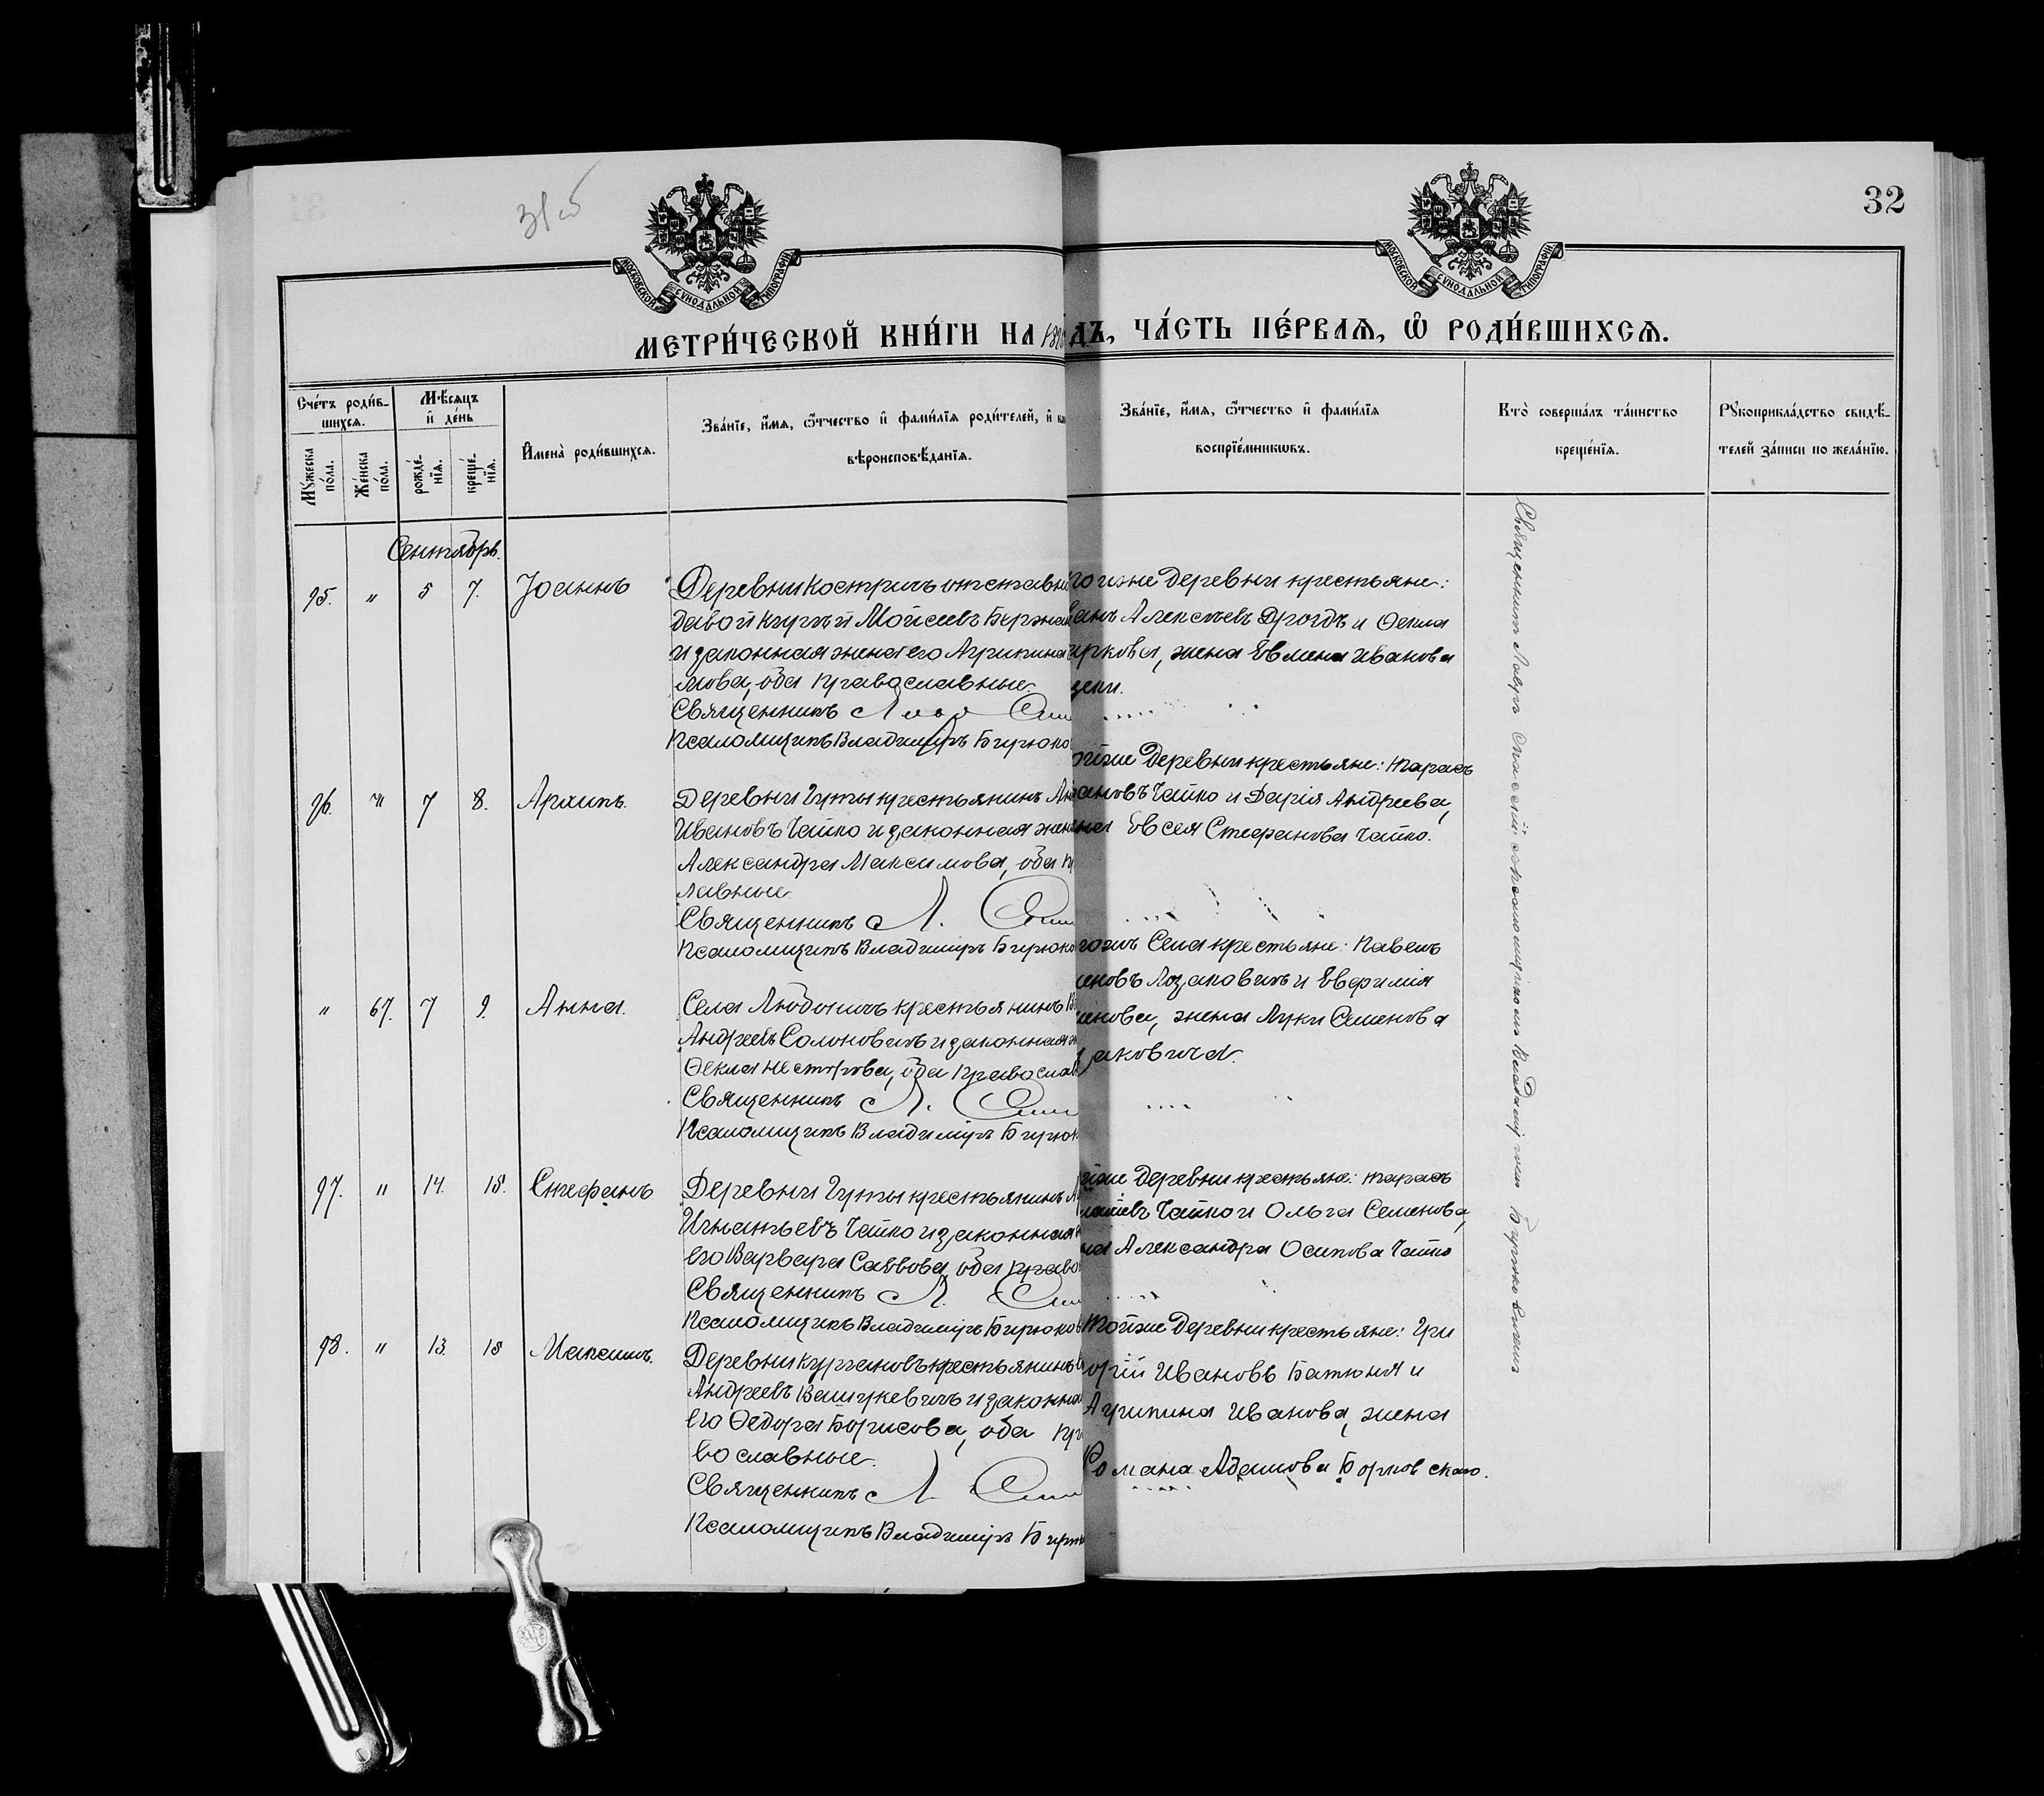 31 об
32
МОСКОВСКОЙ СѴНОДАЛЬНОЙ ТИПОГРАФІИ
МОСКОВСКОЙ СѴНОДАЛЬНОЙ ТИПОГРАФІИ
МЕТРИ́ЧЕСКОЙ КНИ́ГИ НА 189
ДЪ, ЧА́СТЬ ПЕ́РВАѦ, Ѡ РОДИ́ВШИХСѦ.
Сче́тъ роди́в-
шихсѧ.
Мꙋжеска по́ла.
Же́нска по́ла.
Мѣ́сѧцъ и҆ де́нь
рожде́-нїѧ.
креще́-нїѧ.
И҆мена̀ роди́вшихсѧ.
Зва́нїе, и҆́мѧ, ѻ҆́тчество и҆ фами́лїѧ роди́телей, и҆
вѣроисповѣ́данїѧ.
Зва́нїе, и҆́мѧ, ѻ҆́тчество и҆ фами́лїѧ
воспрїе́мникѡвъ.
Кто̀ соверша́лъ та́инство
креще́нїѧ.
Рꙋкоприкла́дство свидѣ́-
телей за́писи по жела́нїю.
Сентябрь.
95. " 5 7. Іоаннъ
Деревни Костричъ отставн
Мойсеевъ
и законная жена его Агрипина
мова, оба православные.
Священникъ Л
Псаломщикъ Владиміръ Бирюко
гоже деревни крестьяне:
анъ Алексѣевъ Дроздъ и Фекла
иркова, жена Евмена Иванова
96. " 7 8. Архипъ.
Деревни Гуты крестьянинъ
Ивановъ Чайко и законная жен
Александра Максимова, оба п
лавные
Священникъ Л.
Псаломщикъ Владиміръ Бирюко
тойже деревни крестьяне: Тарасъ
ановъ Чайко и Дарія Андреева,
на Евсея Стефанова Чайко.
" 67. 7 9. Анна.
Села Любоничъ крестьянинъ
Андреевъ Солоновичъ и законная ж
Фекла Несторова, оба православ
Священникъ Л.
Псаломщикъ Владиміръ Бирюк
гожъ Села крестьяне: Павелъ
еновъ Лозаковичъ и Евфимія
енова, жена Луки Семенова
заковича.
97. " 14. 15. Стефанъ
Деревни Гуты крестьянинъ
Игнатьевъ Чайко и законная
его Варвара Саввова, оба право
Священникъ Л.
Псаломщикъ Владиміръ Бирюков
ойже деревни крестьяне: Тарасъ
Чайко и Ольга Семенова,
на Александра Осипова Чайко
98. " 13. 15 Максимъ.
Деревни Кургановъ крестьянинъ
Андреевъ Вашкевичъ и законна
его Федора Борисова, оба пра
вославные.
Священникъ Л
Псаломщикъ Владиміръ Бирю
Тойже деревни крестьяне: Гри
орій Ивановъ Батюня и
Агрипина Иванова, жена
Романа Адамова Борковскаго.
Священникъ Лавръ съ псаломщикомъ Владиміромъ Бирюковичемъ